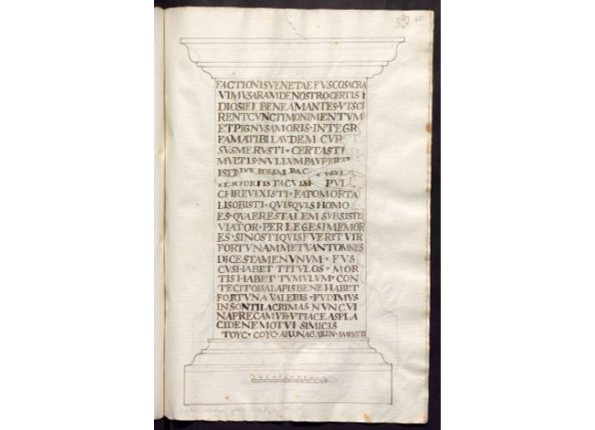 FACTIONIS VENETAE FVSCO SACRA
VIMVS ARAM DE NOSTRO CERTI S I
DIOSI ET BENE AMANTES · VT SCI
RENT CVNCTI MONIMENTVM
ET PIGNVS AMORIS · INTEGR
FAMA TIBI LAVDEM CVR
SVS MERVSTI · CERTASTI
MVLTIS · NVLLVM PAVPER
TACVISTI PVL
CHRE VIXISTI · FATO MORTA
LIS OBISTI · QVISQVIS HOMO
ES · QVAERES TALEM SVBSISTE
VIATOR · PERLEGE SI MEMOR
ES · SI NOSTI QVIS FVERIT VIR
FORTVNAM METVANT OMNES
DICES TAMEN VNVM · FVS
CVS HABET TITVLOS · MOR
TIS HABET TVMVLVM · CON
TEGIT OSSA LAPIS BENE HABET
FORTVNA VALEBIS · FVDIMVS
INSONTI LACRIMAS NVNC VI
NA PRECAMVR VT IACEAS PLA
CIDE NEMO TVI SIMILIS
ΤΟΥϹ · ϹΟΥϹ